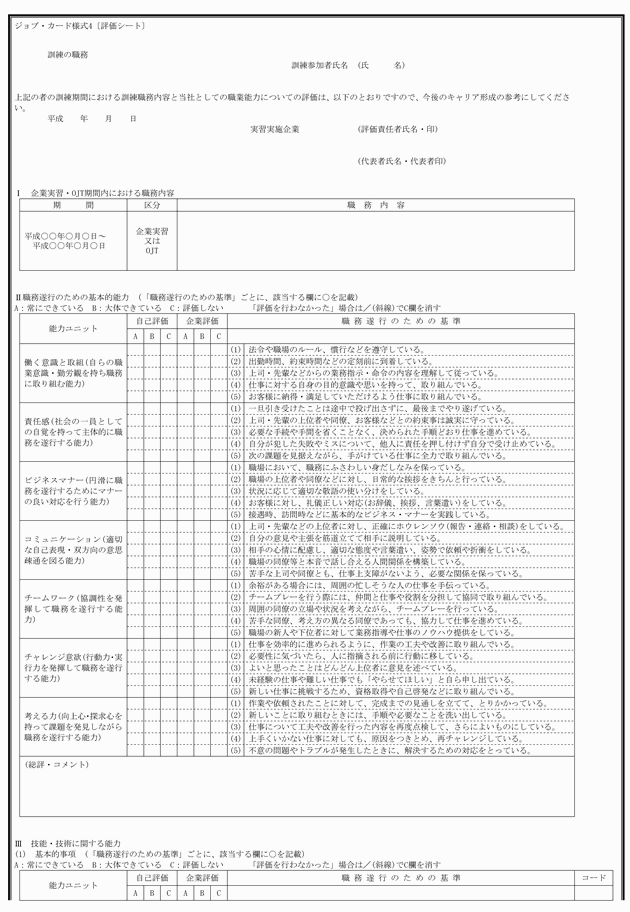 ジョブ・カード様式4〔評価シート〕
訓練の職務
訓練参加者氏名　(氏　　　名)
上記の者の訓練期間における訓練職務内容と当社としての職業能力についての評価は、以下のとおりですので、今後のキャリア形成の参考にしてくださ
い。
平成　　年　　月　　日
実習実施企業　　　(評価責任者氏名・印)
(代表者氏名・代表者印)
Ⅰ　企業実習・OJT期間内における職務内容
期　　間　　区分　　職　務　内　容
平成○○年○月○日～
平成○○年○月○日
企業実習
又は
OJT
Ⅱ職務遂行のための基本的能力　(「職務遂行のための基準」ごとに、該当する欄に○を記載)
A：常にできている　B：大体できている　C：評価しない　　「評価を行わなかった」場合は／(斜線)でC欄を消す
能力ユニット　自己評価　企業評価　職務遂行のための基準
A　B　C　A　B　C
働く意識と取組(自らの職
業意識・勤労観を持ち職務
に取り組む能力)
(1)　法令や職場のルール、慣行などを遵守している。
(2)　出勤時間、約束時間などの定刻前に到着している。
(3)　上司・先輩などからの業務指示・命令の内容を理解して従っている。
(4)　仕事に対する自身の目的意識や思いを持って、取り組んでいる。
(5)　お客様に納得・満足していただけるよう仕事に取り組んでいる。
責任感(社会の一員として
の自覚を持って主体的に職
務を遂行する能力)
(1)　一旦引き受けたことは途中で投げ出さずに、最後までやり遂げている。
(2)　上司・先輩の上位者や同僚、お客様などとの約束事は誠実に守っている。
(3)　必要な手続や手間を省くことなく、決められた手順どおり仕事を進めている。
(4)　自分が犯した失敗やミスについて、他人に責任を押し付けず自分で受け止めている。
(5)　次の課題を見据えながら、手がけている仕事に全力で取り組んでいる。
ビジネスマナー(円滑に職
務を遂行するためにマナー
の良い対応を行う能力)
(1)　職場において、職務にふさわしい身だしなみを保っている。
(2)　職場の上位者や同僚などに対し、日常的な挨拶をきちんと行っている。
(3)　状況に応じて適切な敬語の使い分けをしている。
(4)　お客様に対し、礼儀正しい対応(お辞儀、挨拶、言葉遣い)をしている。
(5)　接遇時、訪問時などに基本的なビジネス・マナーを実践している。
コミュニケーション(適切
な自己表現・双方向の意思
疎通を図る能力)
(1)　上司・先輩などの上位者に対し、正確にホウレンソウ(報告・連絡・相談)をしている。
(2)　自分の意見や主張を筋道立てて相手に説明している。
(3)　相手の心情に配慮し、適切な態度や言葉遣い、姿勢で依頼や折衝をしている。
(4)　職場の同僚等と本音で話し合える人間関係を構築している。
(5)　苦手な上司や同僚とも、仕事上支障がないよう、必要な関係を保っている。
チームワーク(協調性を発
揮して職務を遂行する能
力)
(1)　余裕がある場合には、周囲の忙しそうな人の仕事を手伝っている。
(2)　チームプレーを行う際には、仲間と仕事や役割を分担して協同で取り組んでいる。
(3)　周囲の同僚の立場や状況を考えながら、チームプレーを行っている。
(4)　苦手な同僚、考え方の異なる同僚であっても、協力して仕事を進めている。
(5)　職場の新人や下位者に対して業務指導や仕事のノウハウ提供をしている。
チャレンジ意欲(行動力・実
行力を発揮して職務を遂行
する能力)
(1)　仕事を効率的に進められるように、作業の工夫や改善に取り組んでいる。
(2)　必要性に気づいたら、人に指摘される前に行動に移している。
(3)　よいと思ったことはどんどん上位者に意見を述べている。
(4)　未経験の仕事や難しい仕事でも「やらせてほしい」と自ら申し出ている。
(5)　新しい仕事に挑戦するため、資格取得や自己啓発などに取り組んでいる。
考える力(向上心・探求心を
持って課題を発見しながら
職務を遂行する能力)
(1)　作業や依頼されたことに対して、完成までの見通しを立てて、とりかかっている。
(2)　新しいことに取り組むときには、手順や必要なことを洗い出している。
(3)　仕事について工夫や改善を行った内容を再度点検して、さらによいものにしている。
(4)　上手くいかない仕事に対しても、原因をつきとめ、再チャレンジしている。
(5)　不意の問題やトラブルが発生したときに、解決するための対応をとっている。
(総評・コメント)
Ⅲ　技能・技術に関する能力
(1)　基本的事項　(「職務遂行のための基準」ごとに、該当する欄に○を記載)
A：常にできている　B：大体できている　C：評価しない　　「評価を行わなかった」場合は／(斜線)でC欄を消す
能力ユニット　自己評価　企業評価　職務遂行のための基準　コード
A　B　C　A　B　C